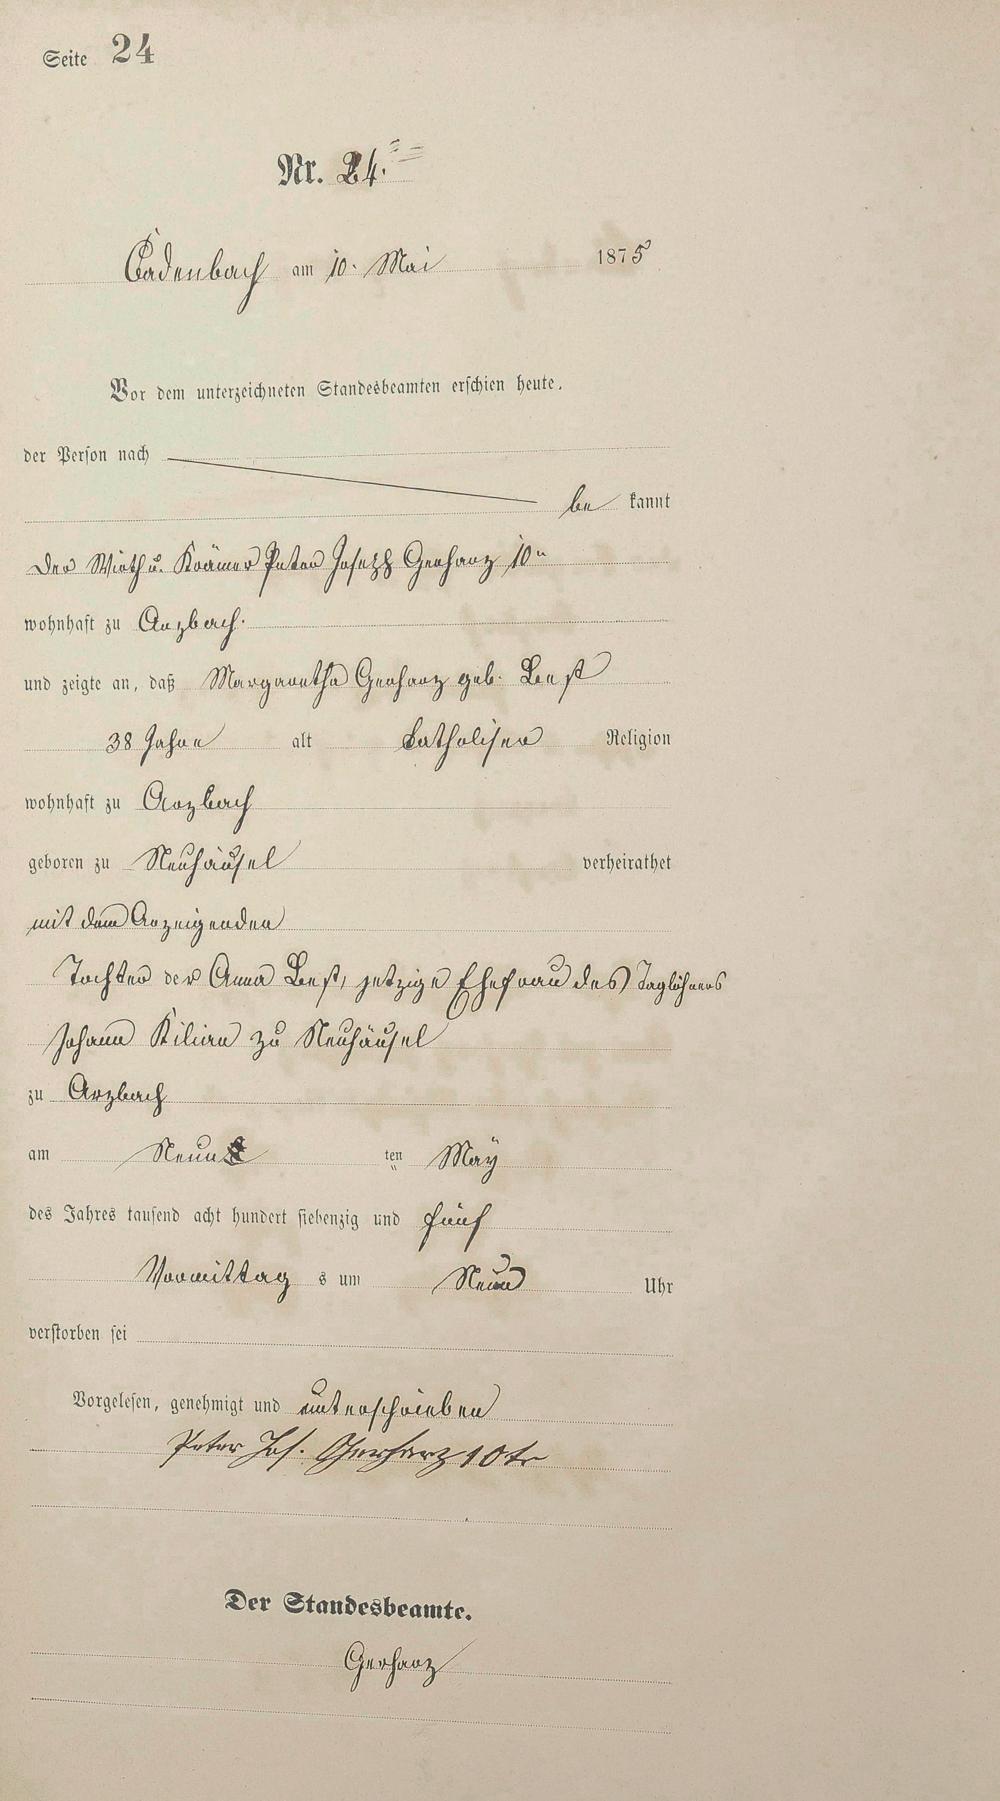 Seite 24
Nr. 24.
Cadenbach am 10. Mai 1875
Vor dem unterzeichneten Standesbeamten erschien heute,
der Person nach
be kannt
der Wirth u. Krämer Peter Joseph Gerharz 10r
wohnhaft zu Arzbach.
und zeigte an, daß Margaretha Gerharz geb. Best
38 Jahre alt katholischer Religion
wohnhaft zu Arzbach
geboren zu Neuhäusel verheirathet
mit dem Anzeigenden
Tochter der Anna Best, jetzige Ehefrau des Taglöhners
Johann Kilian zu Neuhäusel
zu Arzbach
am Neun ten May
des Jahres tausend acht hundert siebenzig und fünf
Vormittag s um Neun Uhr
verstorben sei
Vorgelesen, genehmigt und unterschrieben
Peter Jos. Gerharz 10tr
Der Standesbeamte.
Gerharz